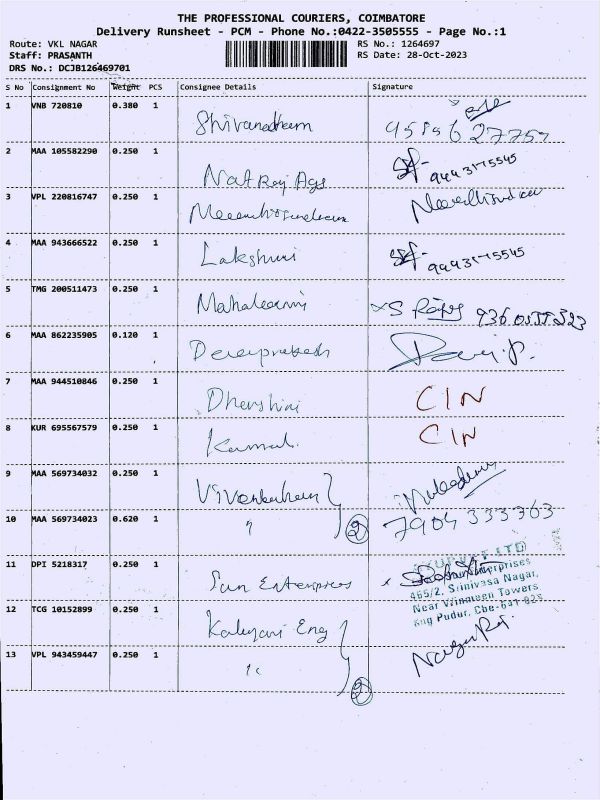 THE PROFESSIONAL COURIERS, COIMBATORE
Delivery Runsheet - PCM - Phone No.:0422-3505555 - Page No.:1
Route: VKL NAGAR
Staff: PRASANTH
DRS No.: DCJB126469701
RS No.: 1264697
RS Date: 28-Oct-2023
S No Consignment No Weight PCS Consignee Details Signature
1 VNB 720810 0.380 1
2 MAA 105582290 0.250 1 Natraj Ags 9443175545
3 VPL 220816747 0.250 1
4 MAA 943666522 0.250 1 Lakshmi 9443175545
5 TMG 200511473 0.250 1
6 MAA 862235905 0.120 1
7 MAA 944510846 0.250 1 Dharshini CIN
8 KUR 695567579 0.250 1 Kamal. CIN
9 MAA 569734032 0.250 1
10 MAA 569734023 0.620 1 " 2 7904333363
11 DPI 5218317 0.250 1 Sun Enterprises
465/2, Srinivasa Nagar,
12 TCG 10152899 0.250 1 Kalyani Eng
13 VPL 943459447 0.250 1 " 2 Nagaraj.